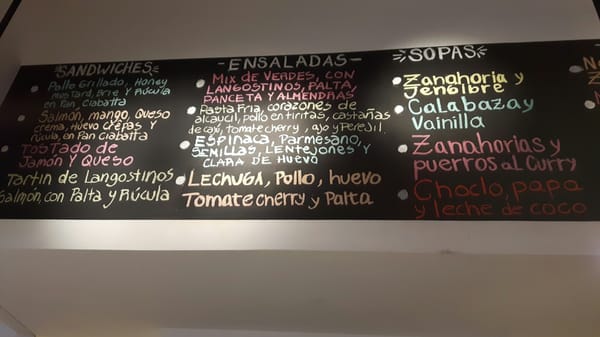 SANDWICHES
Pollo Grillado, Honey
mustard, Brie y Rúcula
en Pan Ciabatta
Salmón, mango, Queso
crema, Huevo Crepas y
rúcula, en Pan Ciabatta
Tostado de
Jamón y Queso
Tartin de Langostinos
Salmón, con Palta y Rúcula
-ENSALADAS-
Mix de Verdes, con
Langostinos, Palta,
Panceta y Almendras
Pasta Fria, corazones de
alcaucil, pollo en tiritas, castañas
de cajú, tomate cherry, ajo y Perejil
Espinaca, Parmesano,
Semillas, Lentejones y
Clara de Huevo
Lechuga, Pollo, huevo
Tomate cherry y Palta
SOPAS
Zanahoria y
Jengibre
Calabaza y
Vainilla
Zanahorias y
puerros al Curry
Choclo, papa
y leche de coco